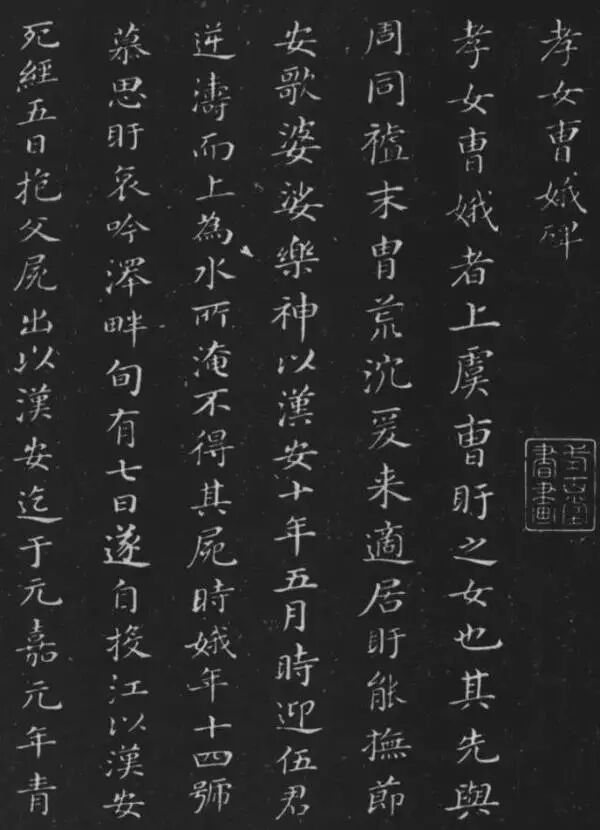 孝女曹娥碑
孝女曹娥者上虞曹盱之女也其先與
周同禮末胄荒沈爰来適居盱能撫節
安歌婆娑樂神以漢安十年五月時迎伍君
逆濤而上為水所淹不得其屍時娥年十四號
慕思盱哀吟澤畔旬有七日遂自投江以漢安
死經五日抱父屍出以漢安迄于元嘉元年青
書畫